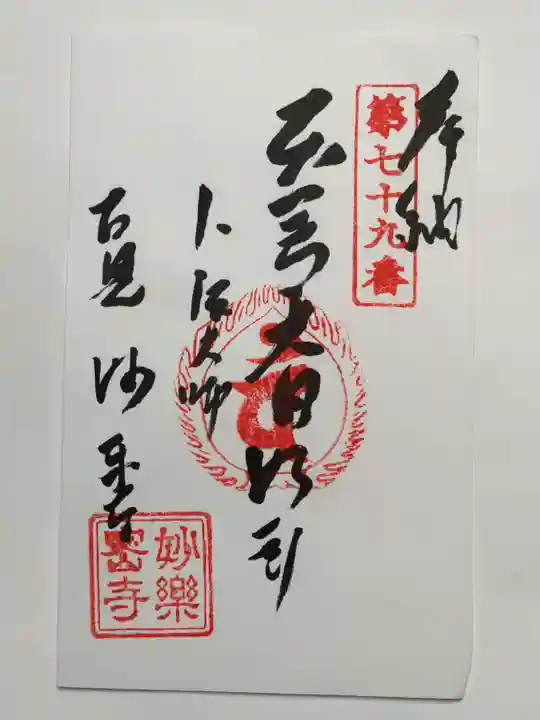 奉納
第七十九番
天言大日如来
弘法大師
古見 妙楽寺
妙樂
密寺